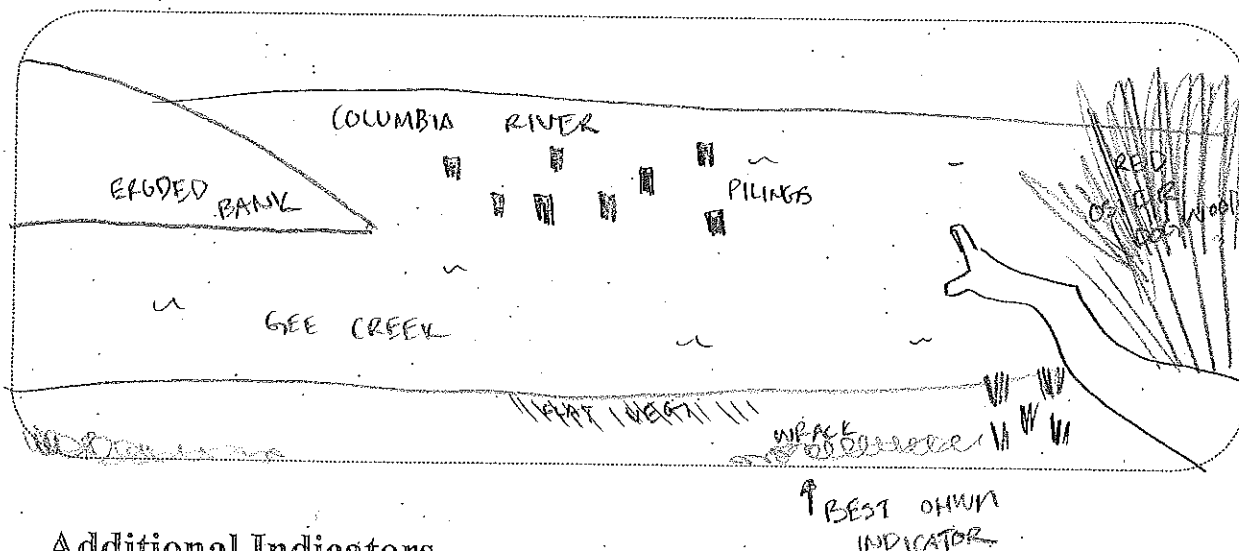 COLUMBIA RIVER
ERODED
BANK
PILINGS
RED
OSIER
DOGWOOD
GEE CREEK
FLAT VEG
WRACK
↑ BEST OHWM
INDICATOR
Additional Indicators